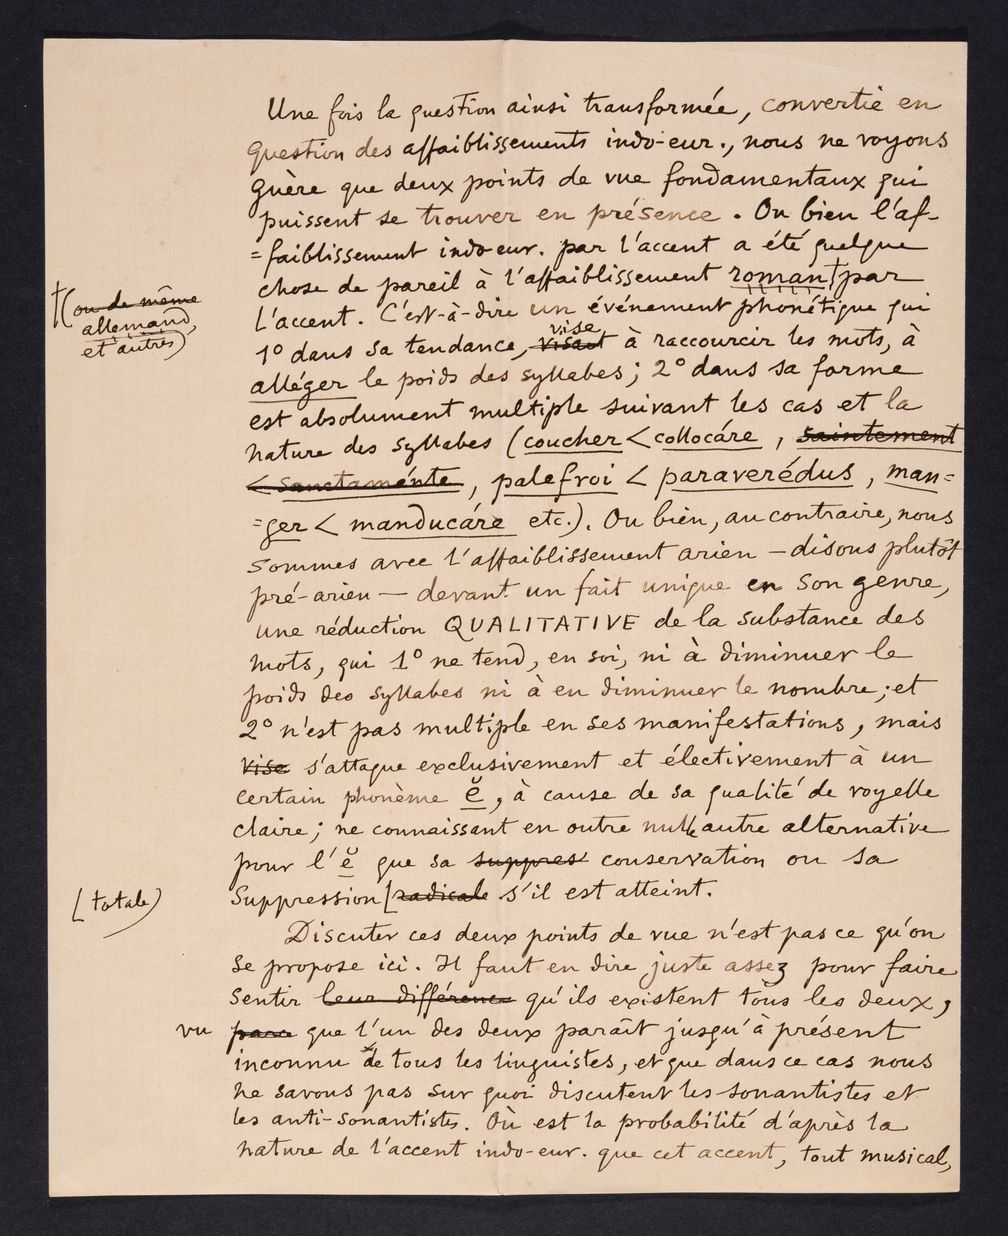 Une fois la question ainsi transformée, convertie en
question des affaiblissements indo-eur., nous ne voyons
guère que deux points de vue fondamentaux qui
puissent se trouver en présence. Ou bien l'af-
=faiblissement indo-eur. par l'accent a été quelque
chose de pareil à l'affaiblissement roman† par
†(ou de même
allemand,
et autres)
l'accent. C'est-à-dire un événement phonétique qui
1° dans sa tendance, visant vise à raccourcir les mots, à
alléger le poids des syllabes; 2° dans sa forme
est absolument multiple suivant les cas et la
nature des syllabes (coucher < collocáre, saintement
< sanctaménte, palefroi < paraverédus, man=
=ger < manducáre etc.). Ou bien, au contraire, nous
sommes avec l'affaiblissement arien – disons plutôt
pré-arien – devant un fait unique en son genre,
une réduction QUALITATIVE de la substance des
mots, qui 1° ne tend, en soi, ni à diminuer le
poids des syllabes ni à en diminuer le nombre; et
2° n'est pas multiple en ses manifestations, mais
vise s'attaque exclusivement et électivement à un
certain phonème ĕ, à cause de sa qualité de voyelle
claire; ne connaissant en outre nulle autre alternative
pour l'ĕ que sa suppres conservation ou sa
suppression [radicale s'il est atteint.
[totale)
Discuter ces deux points de vue n'est pas ce qu'on
se propose ici. Il faut en dire juste assez pour faire
sentir leur différence qu'ils existent tous les deux,
vu parce que l'un des deux paraît jusqu'à présent
inconnu de tous les linguistes, et que dans ce cas nous
ne savons pas sur quoi discutent les sonantistes et
les anti-sonantistes. Où est la probabilité d'après la
nature de l'accent indo-eur. que cet accent, tout musical,